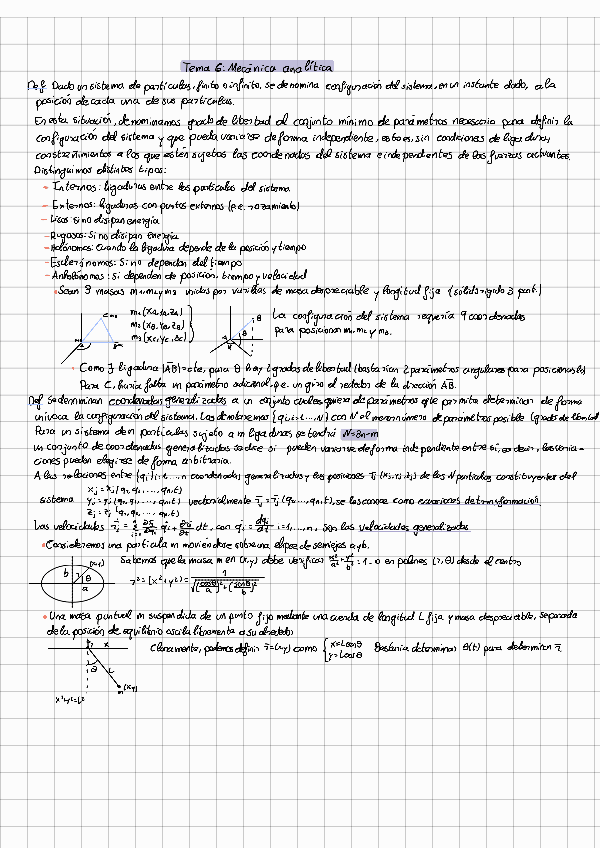 Tema 6: Mecánica analítica
Def Dado un sistema de partículas, finito o infinito, se denomina configuración del sistema, en un instante dado, a la
posición de cada una de sus partículas.
En esta situación, denominamos grado de libertad al conjunto mínimo de parámetros necesario para definir la
configuración del sistema y que pueda variarse de forma independiente, esto es, sin condiciones de ligadura y
constreñimientos a los que estén sujetos las coordenadas del sistema e independientes de las fuerzas actuantes.
Distinguimos distintos tipos:
- Internos: ligaduras entre las partículas del sistema
- Externos: ligaduras con puntos externos (p.e. rozamiento)
- Lisas: si no disipan energía
- Rugosas: Si no disipan energía
- Holónomos: Cuando la ligadura depende de la posición y tiempo
- Esclerónomos: Si no dependen del tiempo
- Anholónomos: Si dependen de posición, tiempo y velocidad
• Sean 3 masas m₁, m₂ y m₃ unidas por varillas de masa despreciable y longitud fija (sólido rígido 3 part.)
m₁ (xA, yA, zA)
m₂ (xB, yB, zB)
m₃ (xC, yC, zC)
La configuración del sistema requería 9 coordenadas
para posicionar m₁, m₂ y m₃.
• Como ∃ ligadura |AB|=cte, para B hay 2 grados de libertad (bastarían 2 parámetros angulares para posicionarlo)
Para C, haría falta un parámetro adicional, p.e. un giro alrededor de la dirección AB.
Def Se denominan coordenadas generalizadas a un conjunto cualesquiera de parámetros que permita determinar de forma
unívoca la configuración del sistema. Las denotaremos {qi, i=1,...,N} con N el menor número de parámetros posible (grados de libertad)
Para un sistema de n partículas sujeto a m ligaduras se tendrá N=3n-m
Un conjunto de coordenadas generalizadas se dice si pueden variarse de forma independiente entre sí, es decir, las varia-
ciones pueden elegirse de forma arbitraria.
A las relaciones entre {qi} i=1,...,n coordenadas generalizadas y las posiciones r̄j (xj, yj, zj) de las N partículas constituyentes del
xj = xj (q₁, q₂, ..., qn, t)
sistema yj = yj (q₁, q₂, ..., qn, t) vectorialmente r̄j = r̄j (q₁, ..., qn, t), se las conoce como ecuaciones de transformación
zj = zj (q₁, q₂, ..., qn, t)
con q̇i = dqi/dt i=1,...,n, son las velocidades generalizadas
• Consideremos una partícula m moviéndose sobre una elipse de semiejes a y b.
(x,y)
b θ
a
Sabemos que la masa m en (x,y) debe verificar x²/a² + y²/b² = 1 → o en polares (r,θ) desde el centro
• Una masa puntual m suspendida de un punto fijo mediante una cuerda de longitud L fija y masa despreciable, separada
de la posición de equilibrio oscila libremente a su alrededor
x
θ L
m (x,y)
x²+y²=L²
Claramente, podemos definir r̄=(x,y) como { x=L senθ
y=L cosθ
Bastaría determinar θ(t) para determinar r̄